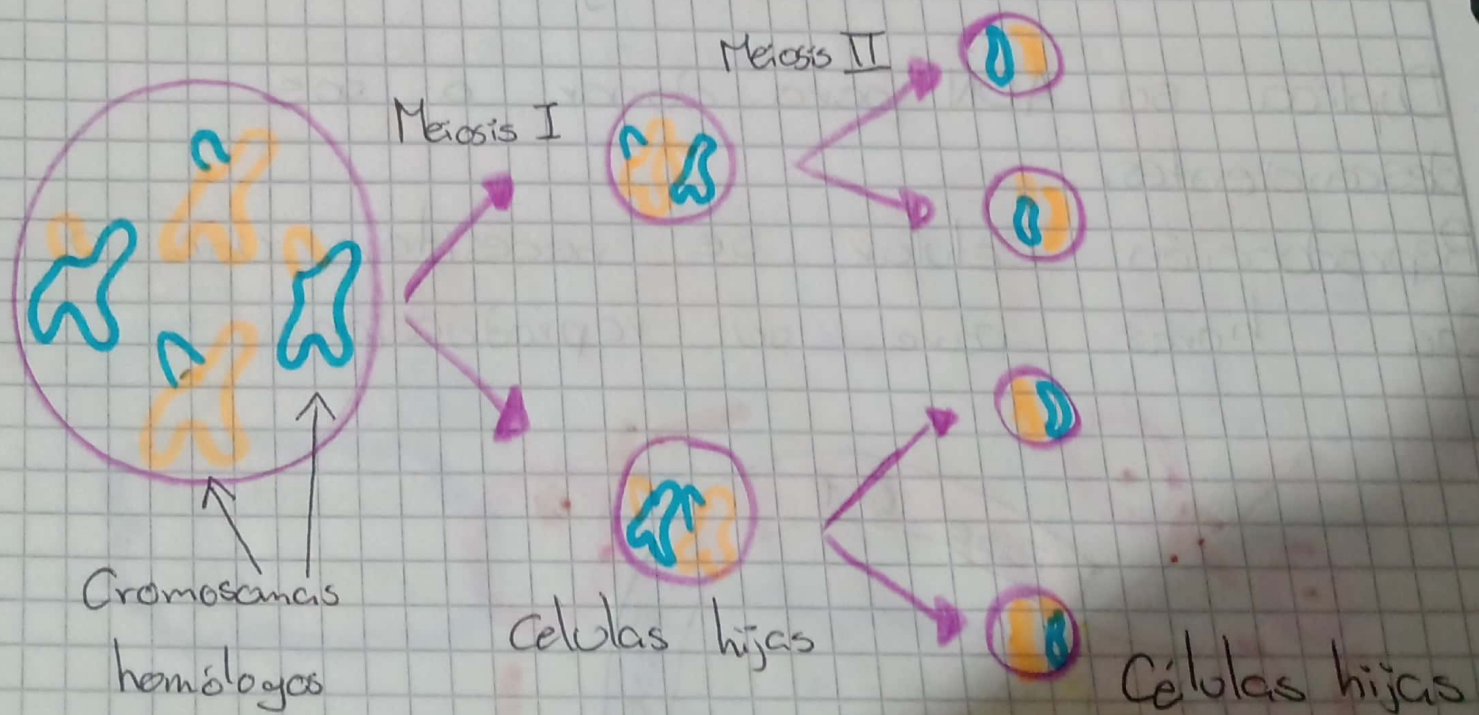 Meiosis I
Meiosis II
Cromosomas
homólogos
Celulas hijas
Células hijas